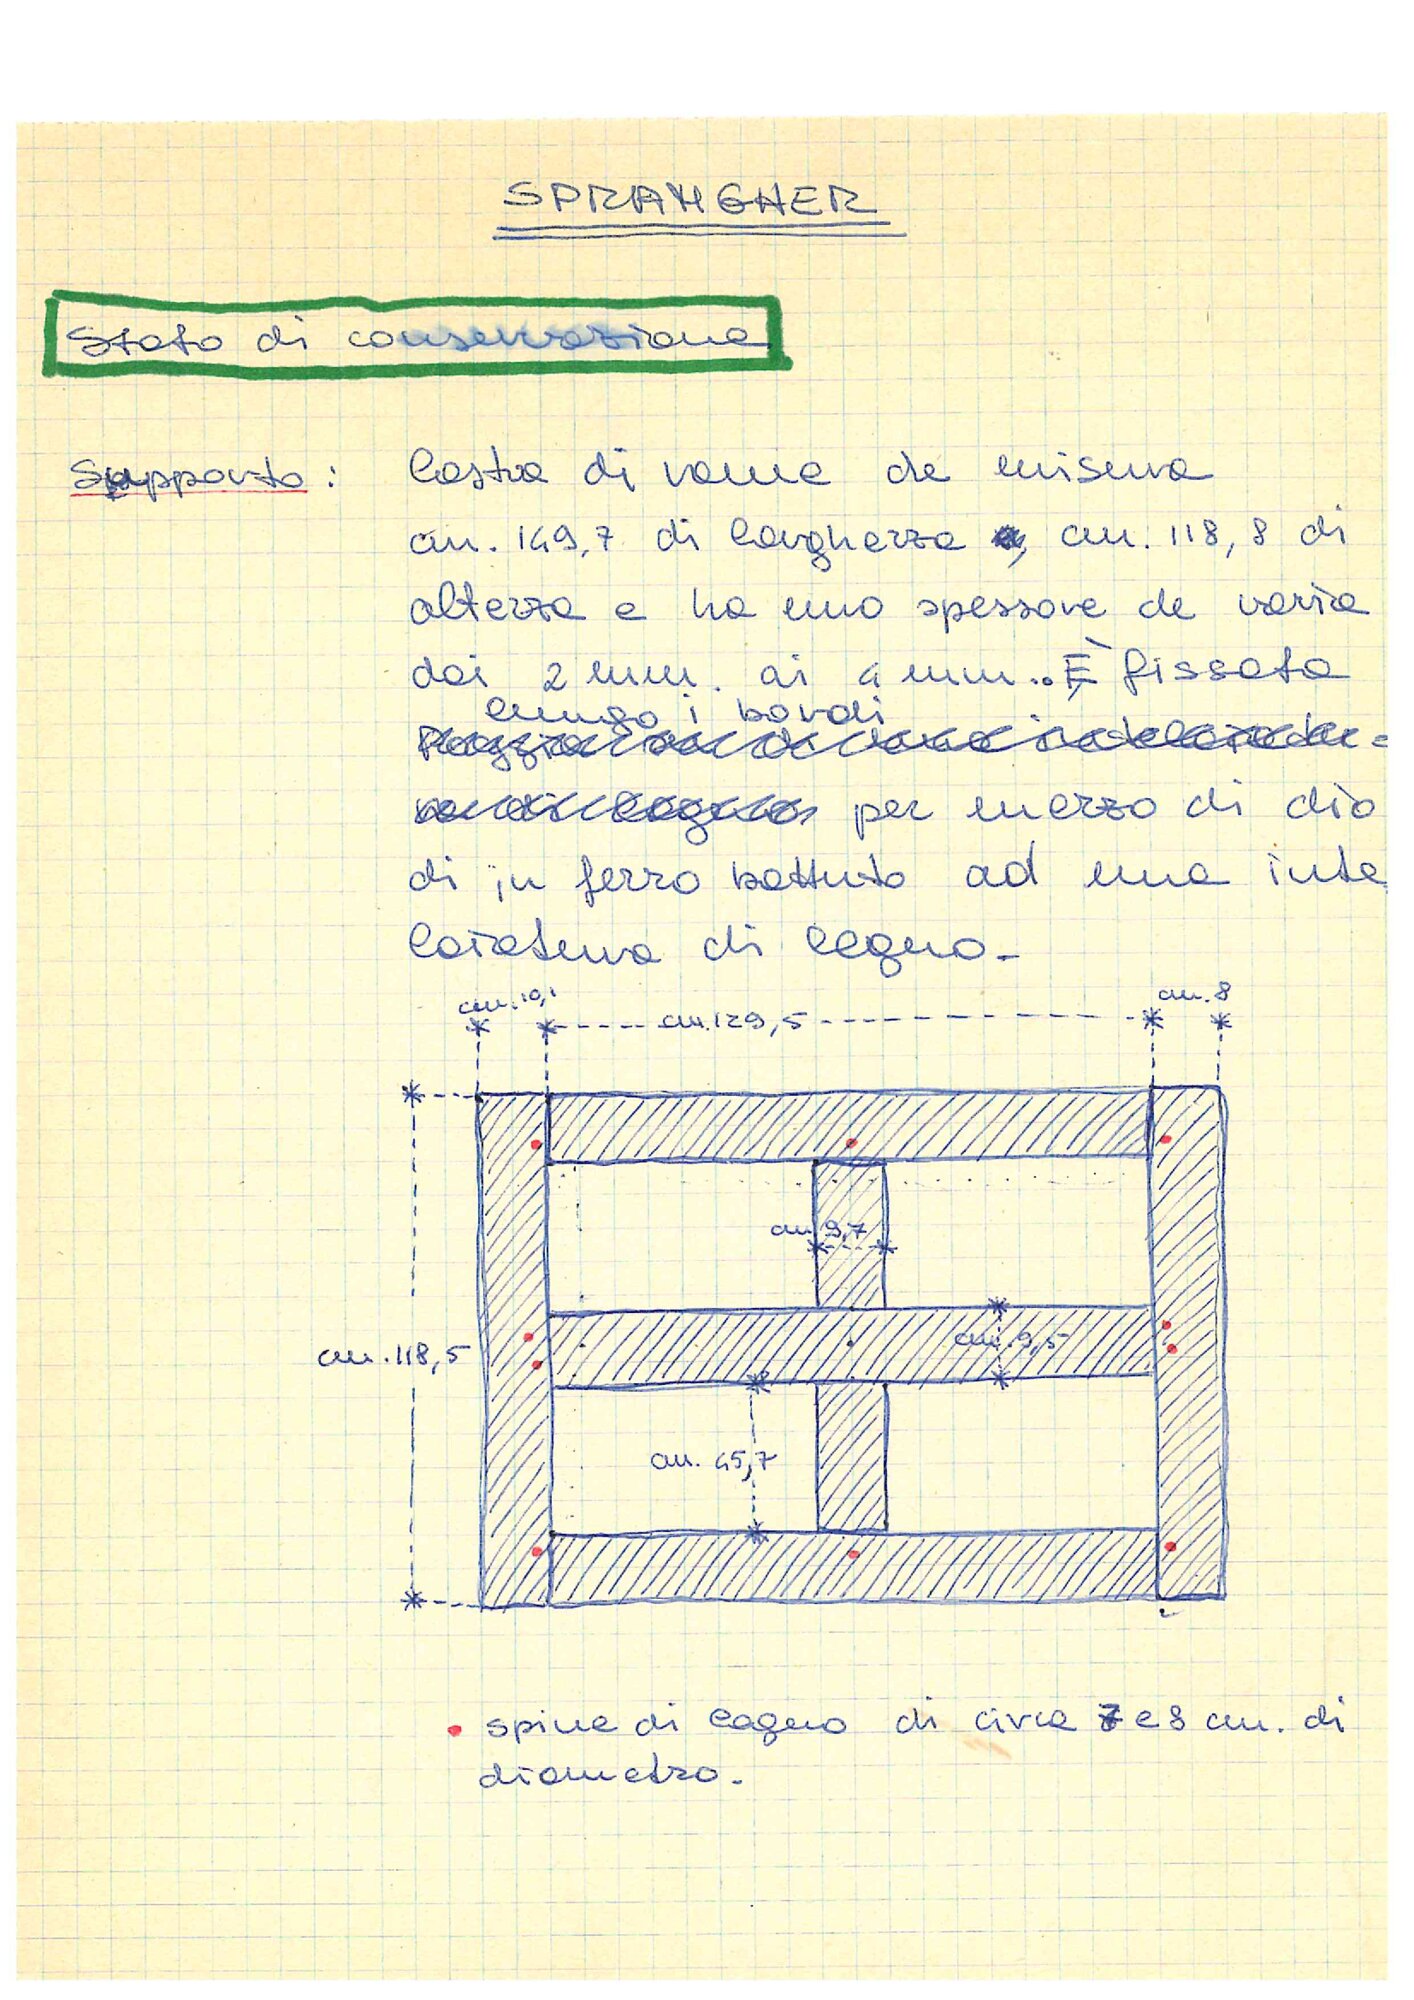 SPRANGHER
Stato di conservazione
Supporto: lastra di rame che misura
cm. 149,7 di larghezza, cm. 118,8 di
altezza e ha uno spessore che varia
dai 2 mm. ai 4 mm.. È fissata
lungo i bordi
per mezzo di chio
di in ferro battuto ad una inte
laiatura di legno.
cm. 10,1
cm. 129,5
cm. 8
cm. 9,7
cm. 118,5
cm. 9,5
cm. 45,7
• spine di legno di circa 7 e 8 cm. di
diametro.